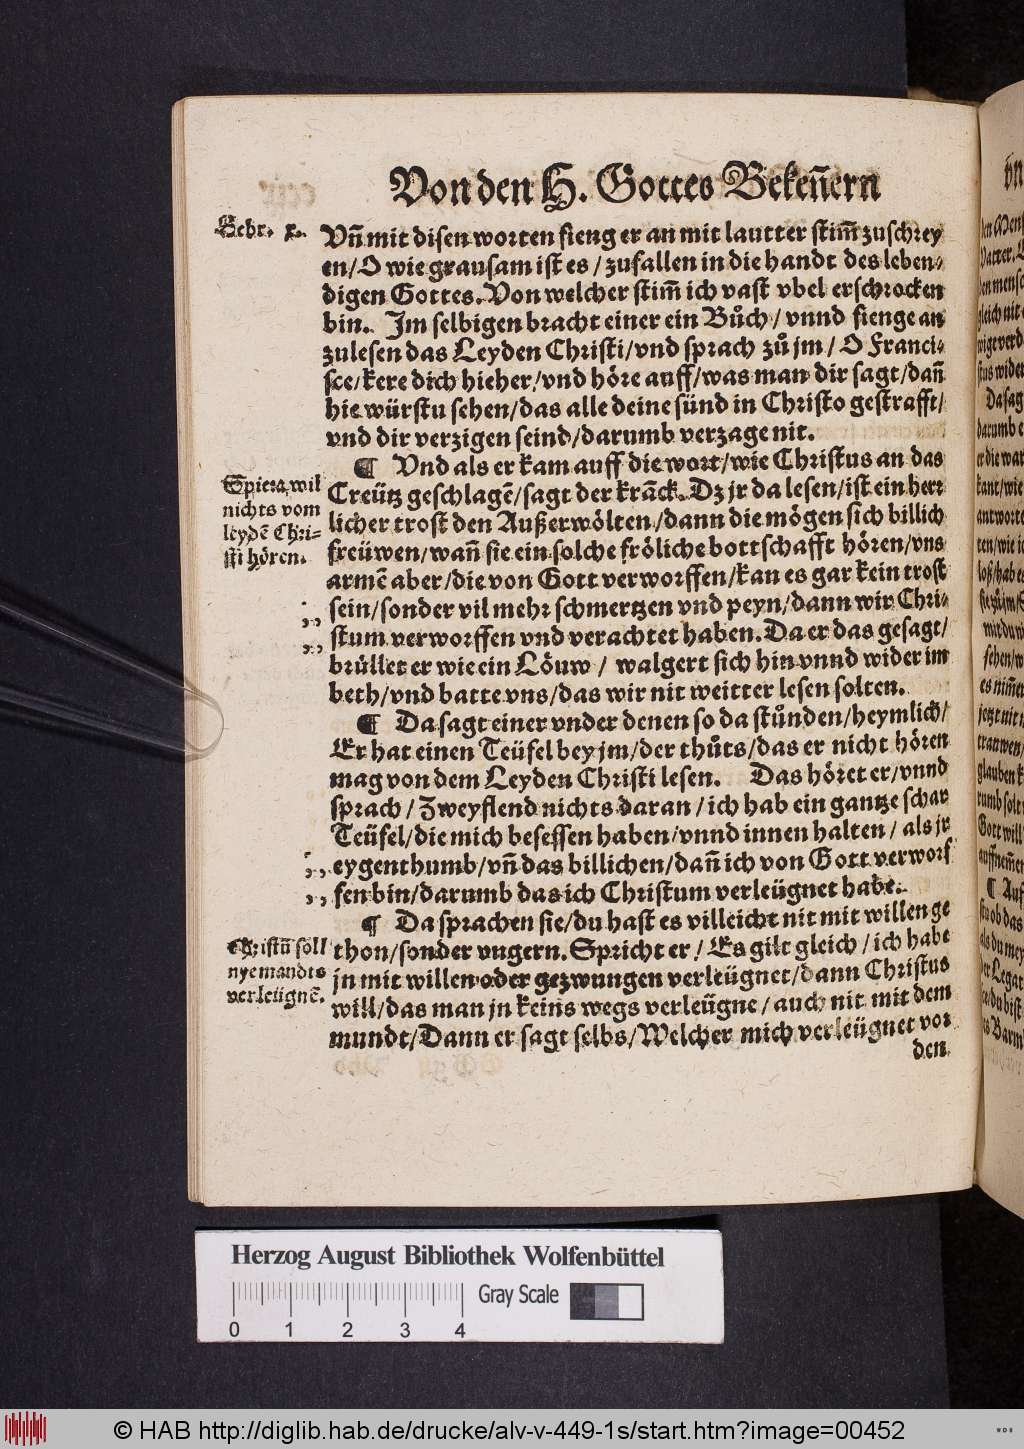 Von den H. Gottes Bekeñern
Hebr. x.
Vñ mit disen worten fieng er an mit lautter stim̃ zuschrey
en/O wie grausam ist es/zufallen in die handt des leben-
digen Gottes. Von welcher stim̃ ich vast vbel erschrocken
bin. Im selbigen bracht einer ein Bůch/vnnd fienge an
zulesen das Leyden Christi/vnd sprach zů jm/O Franci-
sce/kere dich hieher/vnd höre auff/was man dir sagt/dañ
hie würstu sehen/das alle deine sünd in Christo gestrafft/
vnd dir verzigen seind/darumb verzage nit.
¶ Vnd als er kam auff die wort/wie Christus an das
Spiera wil
nichts vom
leydẽ Chri-
sti hören.
Creütz geschlagẽ/sagt der krãck. Dz jr da lesen/ist ein herr
licher trost den Außerwölten/dann die mögen sich billich
freüwen/wañ sie ein solche fröliche bottschafft hören/vns
armẽ aber/die von Gott verworffen/kan es gar kein trost
sein/sonder vil mehr schmertzen vnd peyn/dann wir Chri-
stum verworffen vnd verachtet haben. Da er das gesagt/
brüllet er wie ein Löuw/ walgert sich hin vnnd wider im
beth/vnd batte vns/das wir nit weitter lesen solten.
¶ Da sagt einer vnder denen so da stůnden/heymlich/
Er hat einen Teüfel bey jm/der thůts/das er nicht hören
mag von dem Leyden Christi lesen. Das höret er/vnnd
sprach/Zweyflend nichts daran/ich hab ein gantze schar
Teüfel/die mich besessen haben/vnnd innen halten/als jr
eygenthumb/vñ das billichen/dañ ich von Gott verworf
fen bin/darumb das ich Christum verleügnet habe.
¶ Da sprachen sie/du hast es villeicht nit mit willen ge
Christũ soll
nyemandts
verleügnẽ.
thon/sonder vngern. Spricht er/Es gilt gleich/ich habe
jn mit willen oder gezwungen verleügnet/dann Christus
will/das man jn keins wegs verleügne/auch nit mit dem
mundt/Dann er sagt selbs/Welcher mich verleügnet vor
den
Herzog August Bibliothek Wolfenbüttel
0 1 2 3 4
Gray Scale
© HAB http://diglib.hab.de/drucke/alv-v-449-1s/start.htm?image=00452